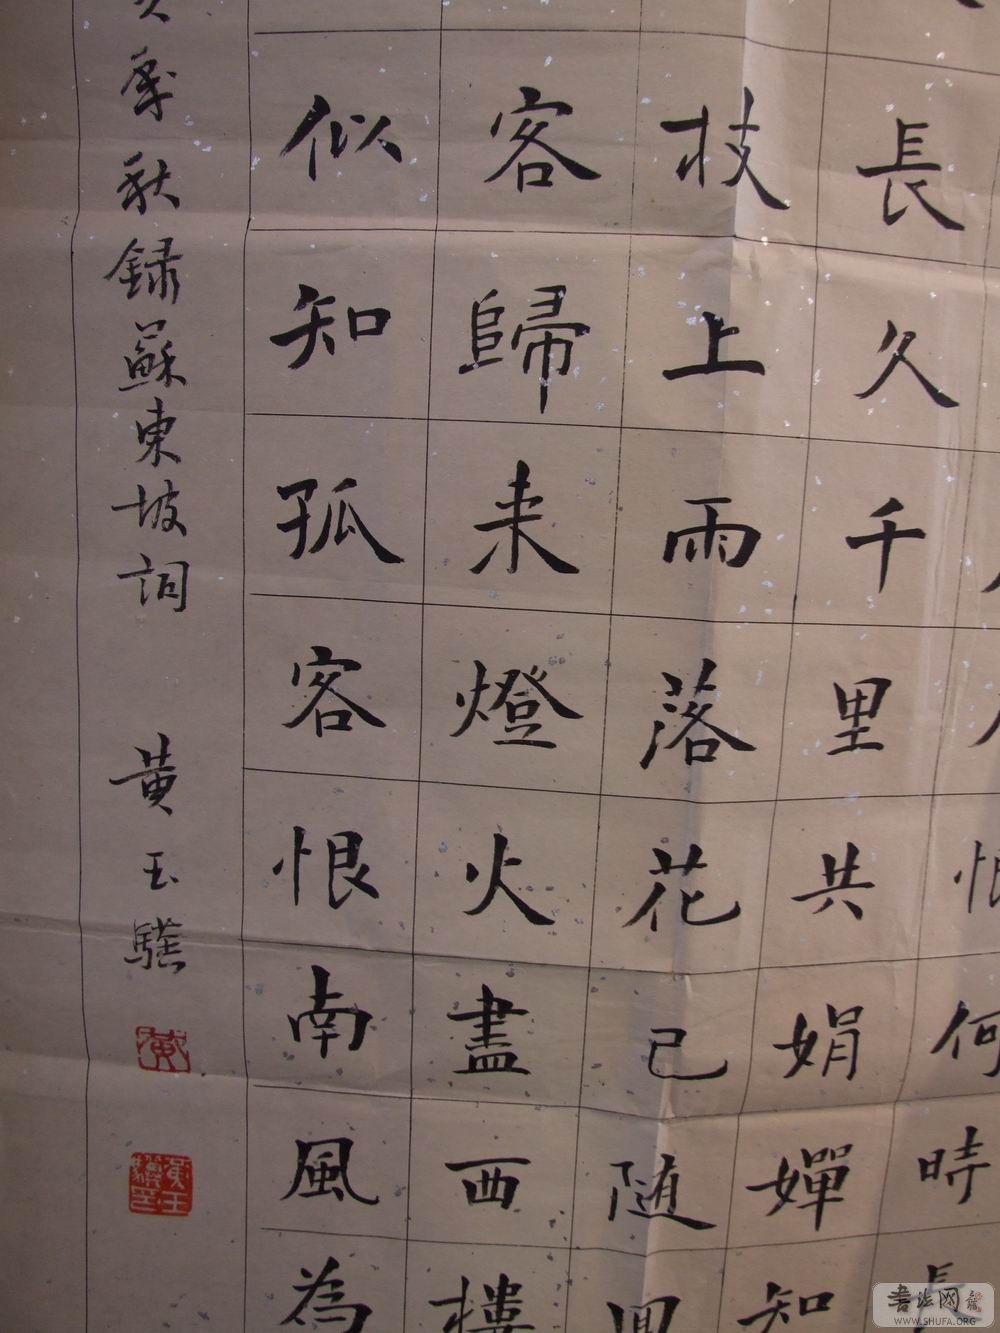 恨何時長
長久千里共娟嬋知
枝上雨落花已随
客歸来燈火盡西樓
似知孤客恨南風為
季秋録蘇東坡詞 黄玉
黄
书法网
WWW.SHUFA.ORG